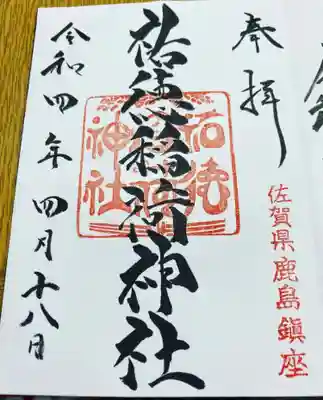 奉拝
佐賀県鹿島鎮座
祐徳稲荷神社
祐徳稲荷神社
令和四年四月十八日